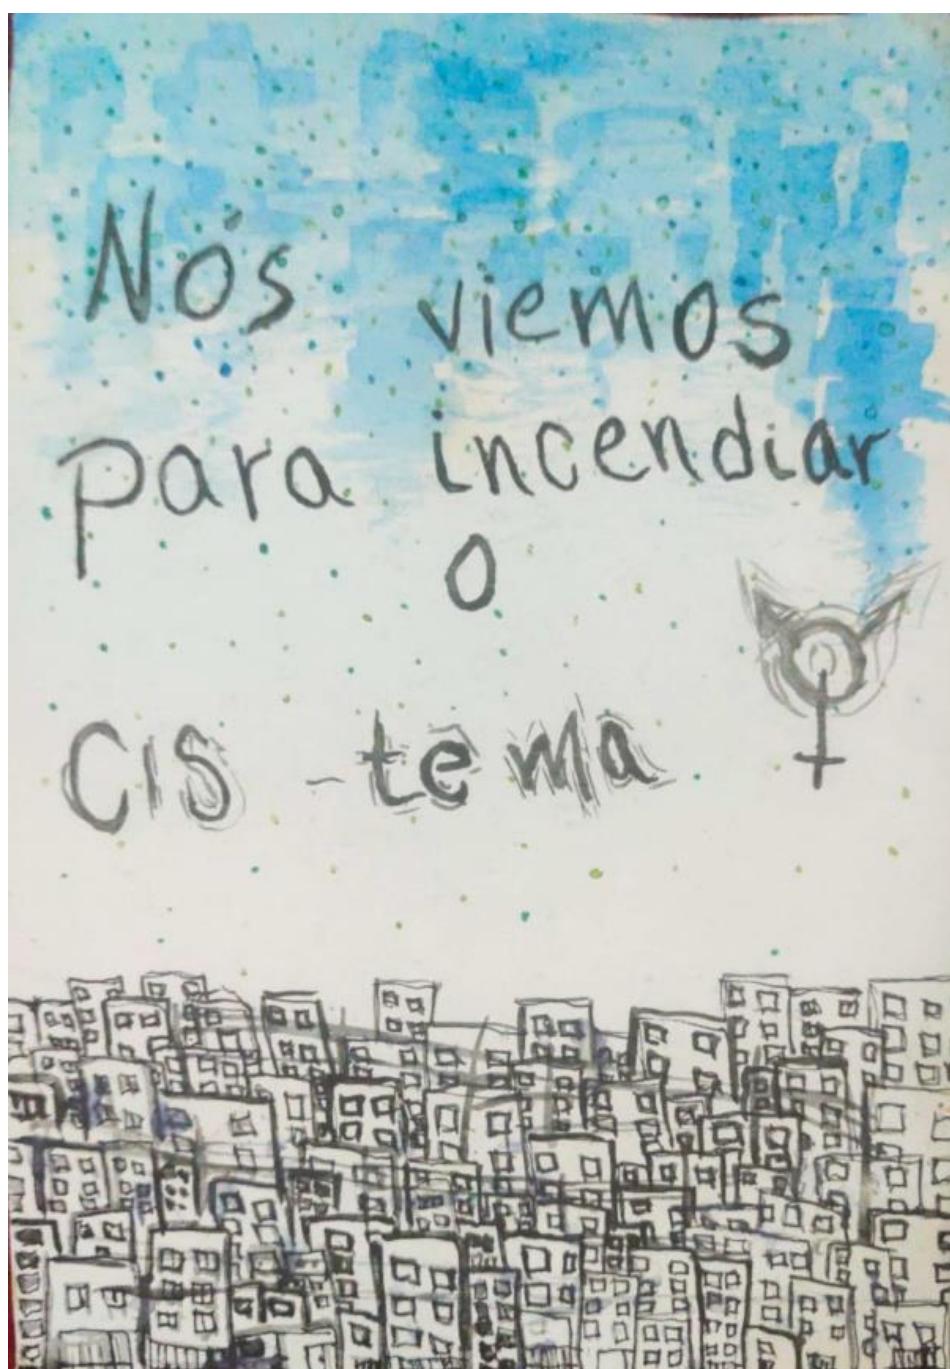 Nós viemos
para incendiar
o
CIS-tema